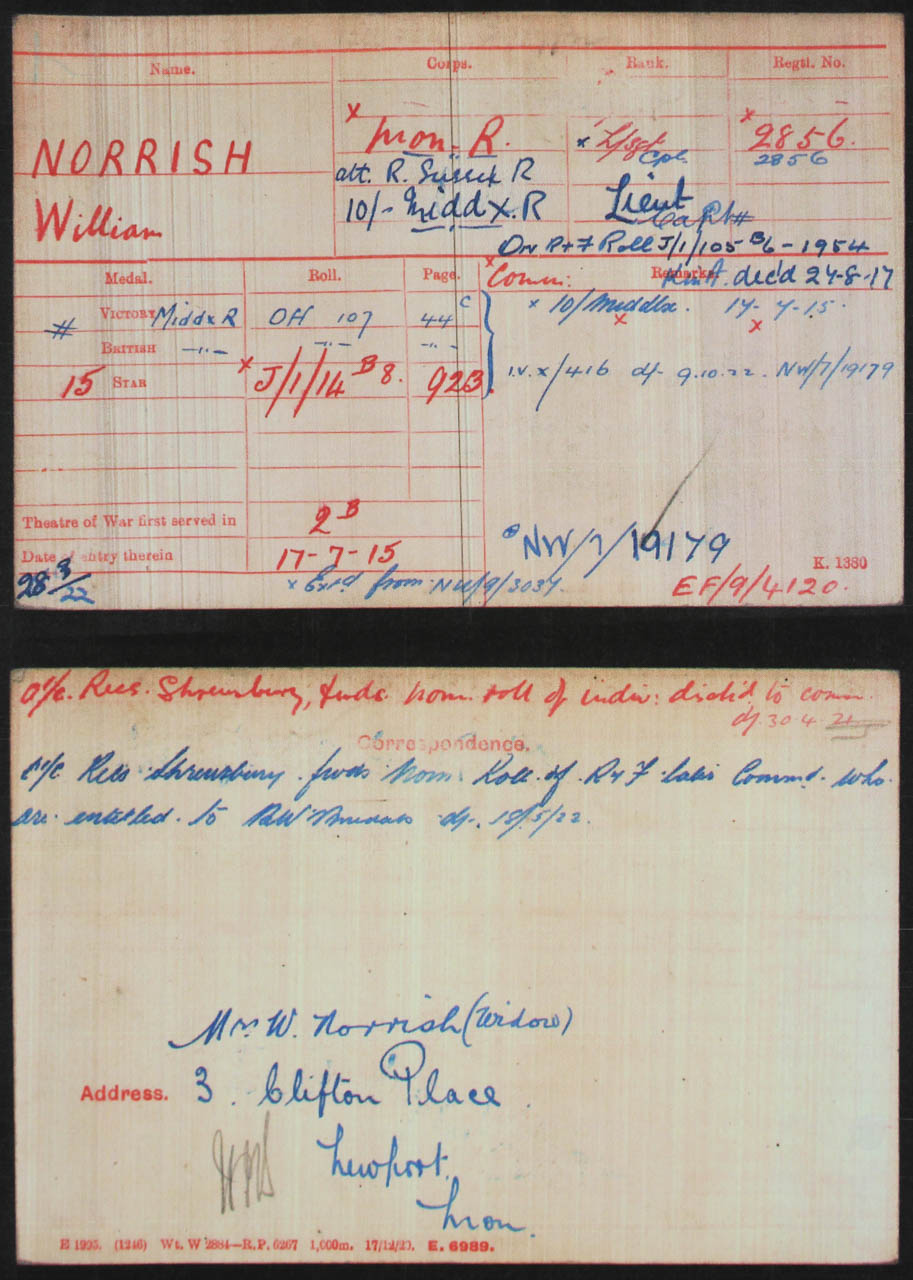 Name. Corps. Rank. Regtl. No.
NORRISH
William
x Mon. R. x L/Sgt x 2856.
att. R. Sussex R Cpl 2856
10/- Middx. R Lieut
Capt #
On R+F Roll J/1/105 B6 - 1954
Medal. Roll. Page. x Comm: Remarks. dec'd 24-8-17
# VICTORY Middx R OH 107 44 C x 10/Middlx. 17-7-15.
BRITISH -"- -"- -"- x x
15 STAR x J/1/14 B 8. 923 I.V. x/416 df 9.10.22. NW/7/19179
Theatre of War first served in 2 B
Date of entry therein 17-7-15
NW/7/19179
K. 1380
28 8/22 x Ext'd from NW/9/3037. EF/9/4120.
O i/c. Recs. Shrewsbury, fwds. nom. roll of indiv: disch'd to comm.
df. 30.4.21
Correspondence.
O i/c Recs Shrewsbury. fwds Nom. Roll of R+F later Commd. who
are entitled to BW Medals df. 18/5/22.
Mrs W. Norrish (Widow)
Address. 3. Clifton Place
Newport,
Mon.
E 1995. (1246) Wt. W 2884—R.P. 6267 1,000m. 17/12/20. E. 6989.